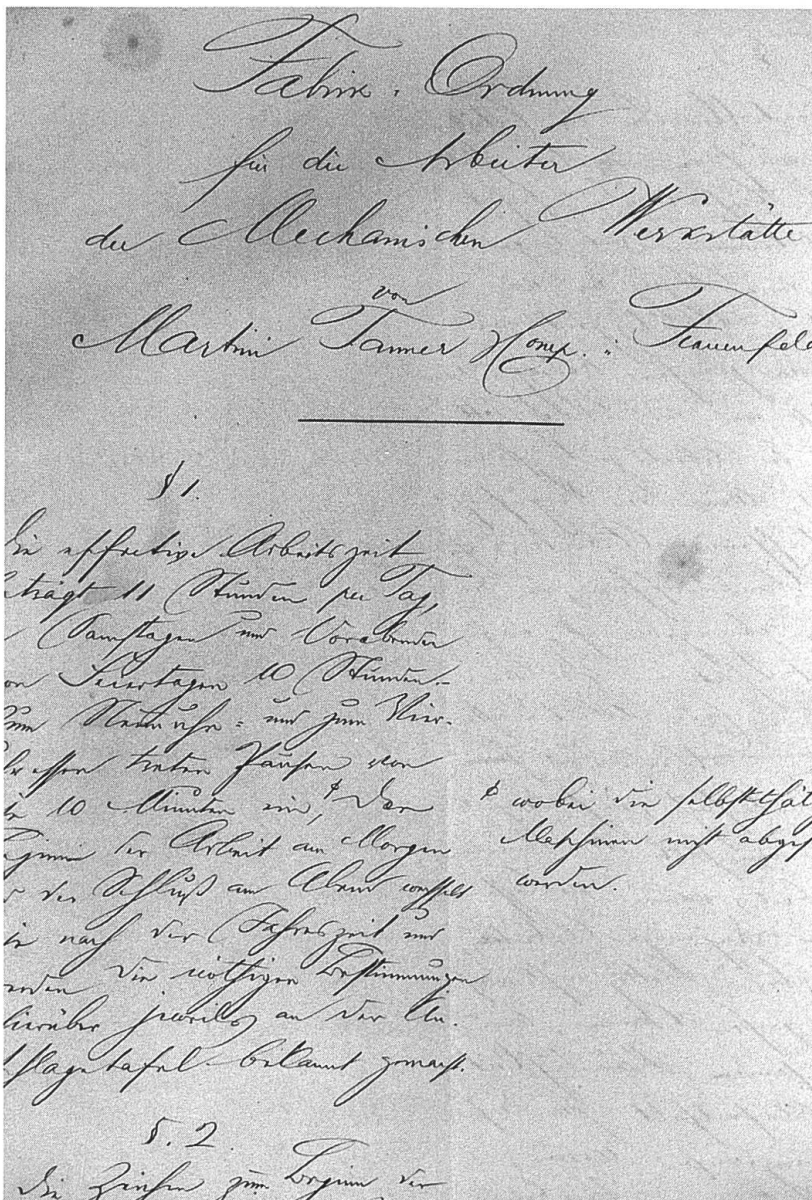 Fabrik-Ordnung
für die Arbeiter
der Mechanischen Werkstätte
von
Martini Tanner Comp. i. Frauenfeld
§ 1.
Die effective Arbeitszeit
beträgt 11 Stunden per Tag,
Samstagen und Vorabenden
von Feiertagen 10 Stunden.
Zum Neunuhr- und zum Vier-
uhressen treten Pausen von
je 10 Minuten ein, Der
Beginn der Arbeit am Morgen
der Schluß am Abend wechselt
je nach der Jahreszeit und
werden die nöthigen Bestimmungen
hierüber jeweils an der An-
schlagetafel bekannt gemacht.
wobei die selbstthät
Maschinen nicht abges
werden.
§. 2.
Die Zeichen zum Beginn der